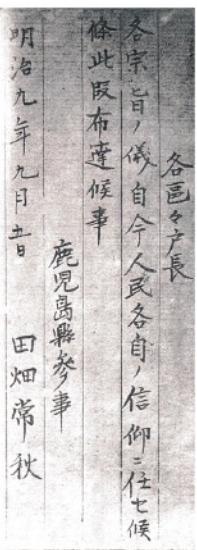 各邑々戸長
各宗旨ノ儀自今人民各自ノ信仰ニ任セ候
條此段布達候事
鹿児島縣参事
明治九年九月五日 田畑常秋